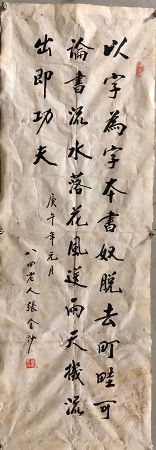 以字為字本書奴脫去町畦可
論書流水落花風送雨天機流
出即功夫
庚午年元月
八四老人張金沙